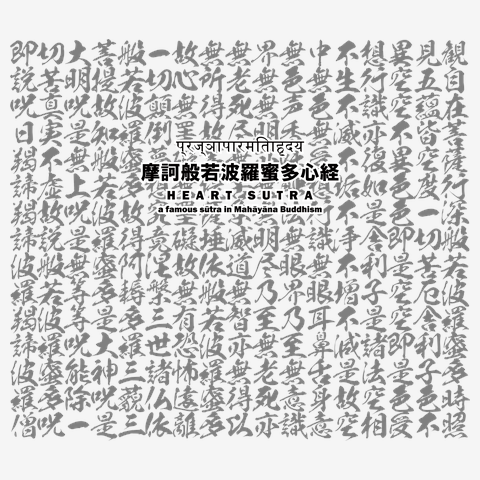 प्रज्ञापारमतिाहृदय
摩訶般若波羅蜜多心経
HEART SUTRA
a famous sūtra in Mahāyāna Buddhism
観自在菩薩行深般若波羅蜜多時照
見五蘊皆空度一切苦厄舎利子色不
異空空不異色色即是空空即是色受
想行識亦復如是舎利子是諸法空相
不生不滅不垢不浄不増不減是故空
中無色無識無眼耳鼻舌身意
無色声香無眼界乃至無意識
界無無明明尽乃至無老死亦
無老死尽滅道無智亦無得以
無所得故埵依般若波羅蜜多
故心無罣礙故無有恐怖遠離
一切顛倒竟涅槃三世諸仏依
般若波羅蜜多故得阿耨多羅三藐三
菩提故知般若波羅蜜多是大神呪是
大明呪是無上呪是無等等呪能除一
切苦真実不虚故説般若波羅蜜多呪
即説呪日羯諦羯諦波羅羯諦波羅僧